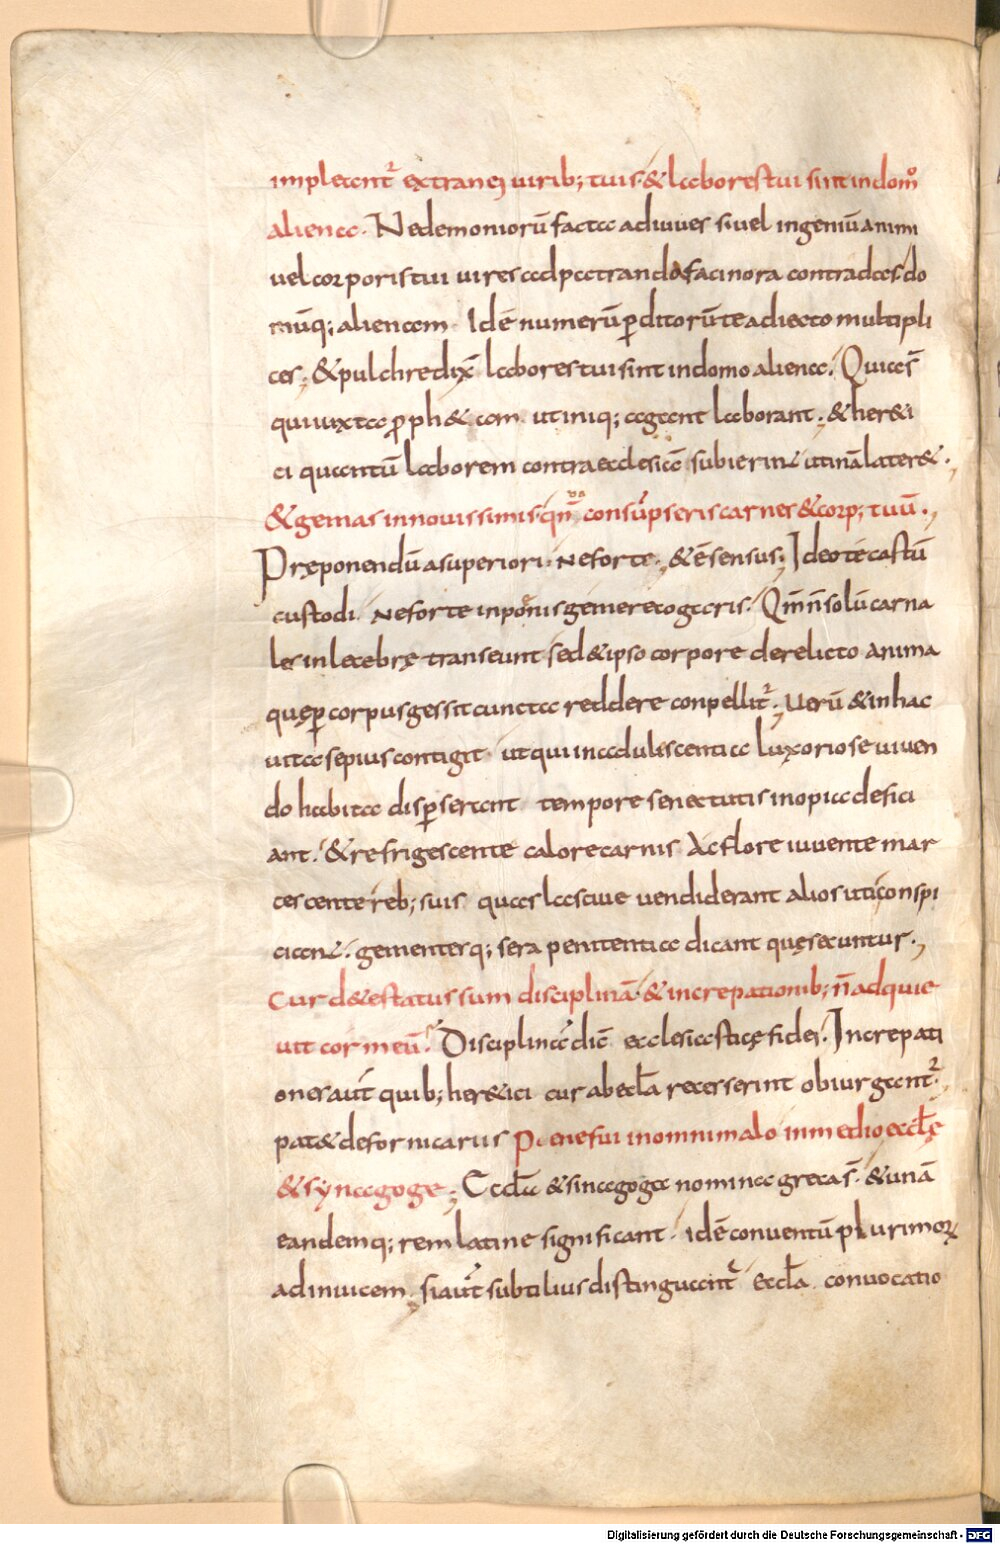 impleantur̃ extranei uirib; tuis· & labores tui sint in domo
aliena· Ne demoniorū facta adiuues siue l ingeniū animi
uel corporis tui uires ad patranda facinora contradas· do
mūq; alienam· Idē numerū ꝑditorū te adiecto multipli
ces; & pulchre dix̄ labores tui sint in domo aliena· Qui as̄
qui iuxta ꝓph&am ut iniq; agant laborant·; & her&i
ci quantū laborem contra ecclesiā subierint utinā later&·;
& gemas in nouissimis· qn̄ consūpseris carnes & corp; tuū·;
Pręponendū a superiori· Ne forte·; & ē sensus·; Ideo te castū
custodi· Ne forte in poenis gemere cogaris· Qm̄ n̄ solū carna
les inlecebrę transeunt sed & ipso corpore derelicto anima
quę ꝑ corpus gessit cuncta reddere conpellit᷑·; Uerū & in hac
uita sepius contigit· ut qui in adulescentia luxoriose uiuen
do habita disꝑserant tempore senectutis inopia defici
ant·; & refrigescente calore carnis Ac flore iuuente mar
cescente reb; suis quas lasciue uendiderant alios uti conspi
ciant· gementesq; sera penitentia dicant quę secuntur·;
Cur d&estatus sum disciplinā· & increpationib; n̄ adquie
uit cor meū· Disciplinā dic̄ ecclesiasticę fidei· Increpati
ones aut̄ quib; her&ici cur ab eccl̄a recesserint obiurgant᷑·;
pat& de fornicariis Poene fui in omni malo in medio eccl̄ę
& synagoge·; Eccl̄a & sinagoga nomina greca s̄· & unā
eandemq; rem latine significant· idē conuentū plurimoꝝ
ad inuicem· si aut̄ subtilius distinguant᷑ eccl̄a conuocatio
Digitalisierung gefördert durch die Deutsche Forschungsgemeinschaft - DFG